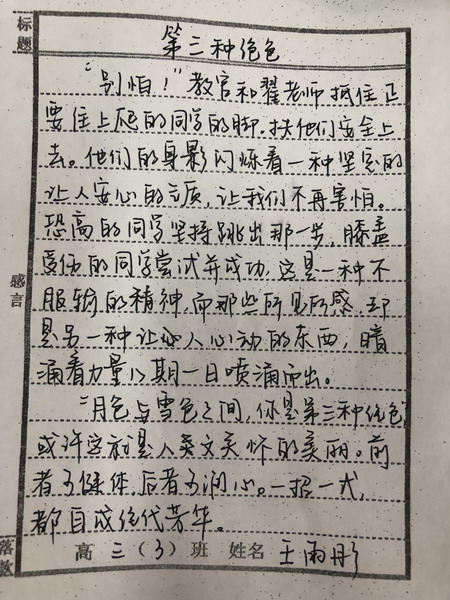 标题
第三种绝色
“别怕！”教官和翟老师抵住正
要往上爬的同学的脚，扶他们安全上
去。他们的身影闪烁着一种坚定的
让人安心的立质，让我们不再害怕。
恐高的同学坚持跳出那一步，膝盖
受伤的同学尝试并成功，这是一种不
感言
服输的精神，而那些所见所感，却
是另一种让人心动的东西，暗
涌着力量以期一日喷涌而出。
“月色与雪色之间，你是第三种绝色
或许这就是人类文关怀的美丽。前
者可健体，后者可润心。一招一式，
都自成绝代芳华。
落款
高三（3）班 姓名 王雨彤